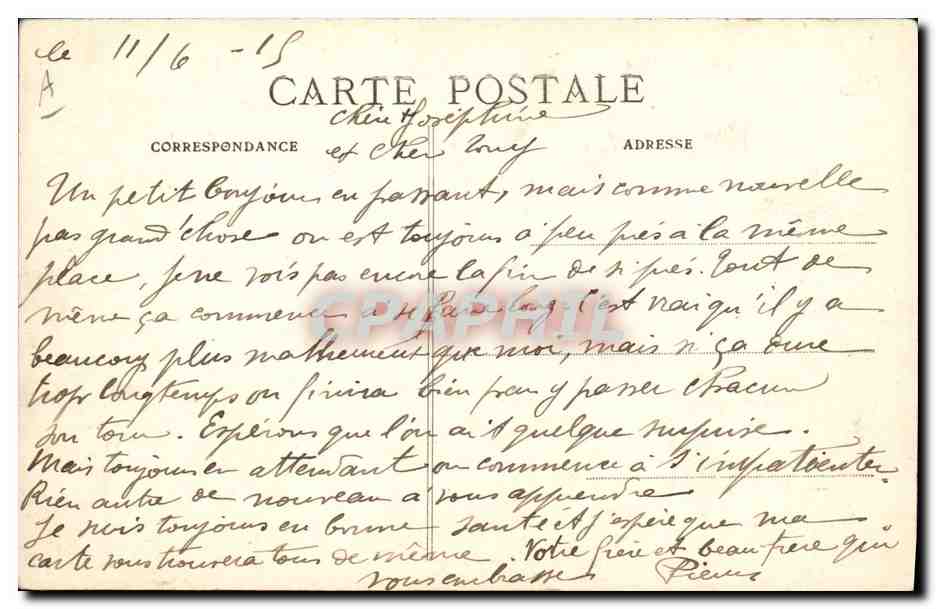 le 11/6 - 15
A
CARTE POSTALE
chère Joséphine
CORRESPONDANCE et cher ADRESSE
Un petit bonjour en passant, mais comme nouvelle
pas grand'chose on est toujours à peu près à la même
place, je ne vois pas encore la fin de si près. Tout de
même ça commence à se faire long c'est vrai qu'il y a
beaucoup plus malheureux que moi, mais si ça dure
trop longtemps on finira bien par y passer chacun
son tour. Espérons que l'on ait quelque surprise.
Mais toujours en attendant on commence à s'impatienter
Rien autre de nouveau à vous apprendre
Je suis toujours en bonne santé et j'espère que ma
carte vous trouvera tous de même. Votre frère et beau frère qui
vous embrasse Pierre
CPAPHIL